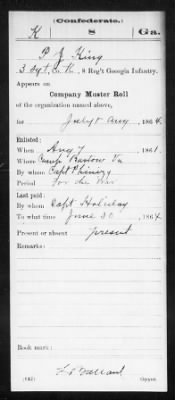 (Confederate.)
K 8 Ga.
P. G. King
3 Sgt, Co. K, 8 Reg't Georgia Infantry.
Appears on
Company Muster Roll
of the organization named above,
for July & Aug, 1864.
Enlisted:
When Aug 7, 1861.
Where Camp Bartow Va
By whom Capt Phinizy
Period for the War
Last paid:
By whom Capt Holliday
To what time June 30, 1864
Present or absent present
Remarks:
Book mark:
(642) Copyist.